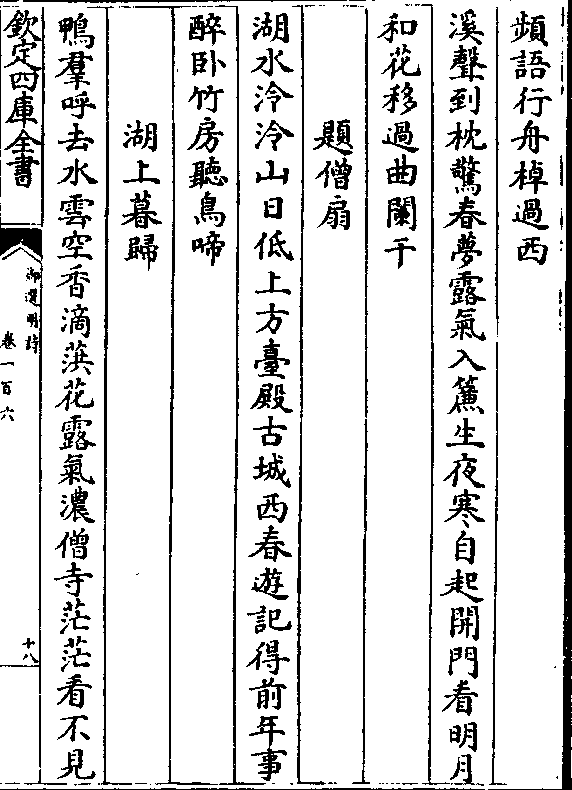 頻語行舟棹過西
溪聲到枕驚春夢露氣入簾生夜寒自起開門看明月
和花移過曲闌干
題僧扇
湖水泠泠山日低上方臺殿古城西春遊記得前年事
醉卧竹房聽鳥啼
湖上暮歸
鴨羣呼去水雲空香滴蕻花露氣濃僧寺茫茫看不見
欽定四庫全書
御選明詩
卷一百六
十八